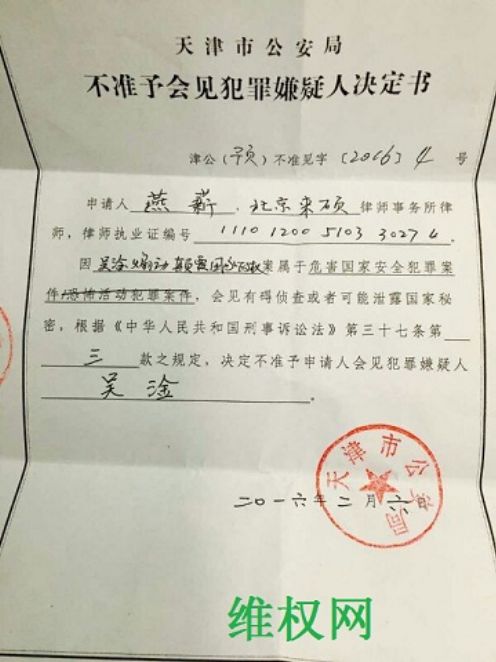 天津市公安局
不准予会见犯罪嫌疑人决定书
津公(预)不准见字〔2016〕4号
申请人 燕薪 、北京来硕 律师事务所律
师,律师执业证编号 11101200510330274
因 吴淦煽动颠覆国家政权 案属于危害国家安全犯罪案
件/恐怖活动犯罪案件,会见有碍侦查或者可能泄露国家秘
密,根据《中华人民共和国刑事诉讼法》第三十七条第
三 款之规定,决定不准予申请人会见犯罪嫌疑人
吴淦 。
天津市公安局
二〇一六年二月六日
维权网